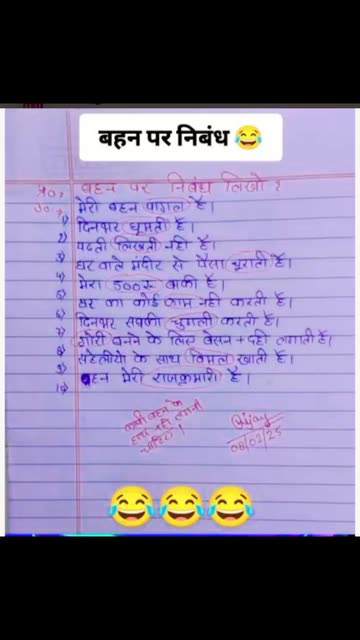 बहन पर निबंध 😂
प्र०, बहन पर निबंध लिखो ?
उ०,
1) मेरी बहन पागल है।
2) दिनभर घूमती है।
3) पढ़ती लिखती नही है।
4) घर वाले मंदीर से पैसा चुराती है।
5) मेरा 500रू बाकी है।
6) घर का कोई काम नही करती है।
7) दिनभर सबकी चुगली करती है।
8) गोरी बनने के लिए बेसन + दही लगाती है।
9) सहेलीयो के साथ विमल खाती है।
10) बहन मेरी राजकुमारी है।
बहन के
नही
चाहिए।
Vijay
08/02/25
😂😂😂